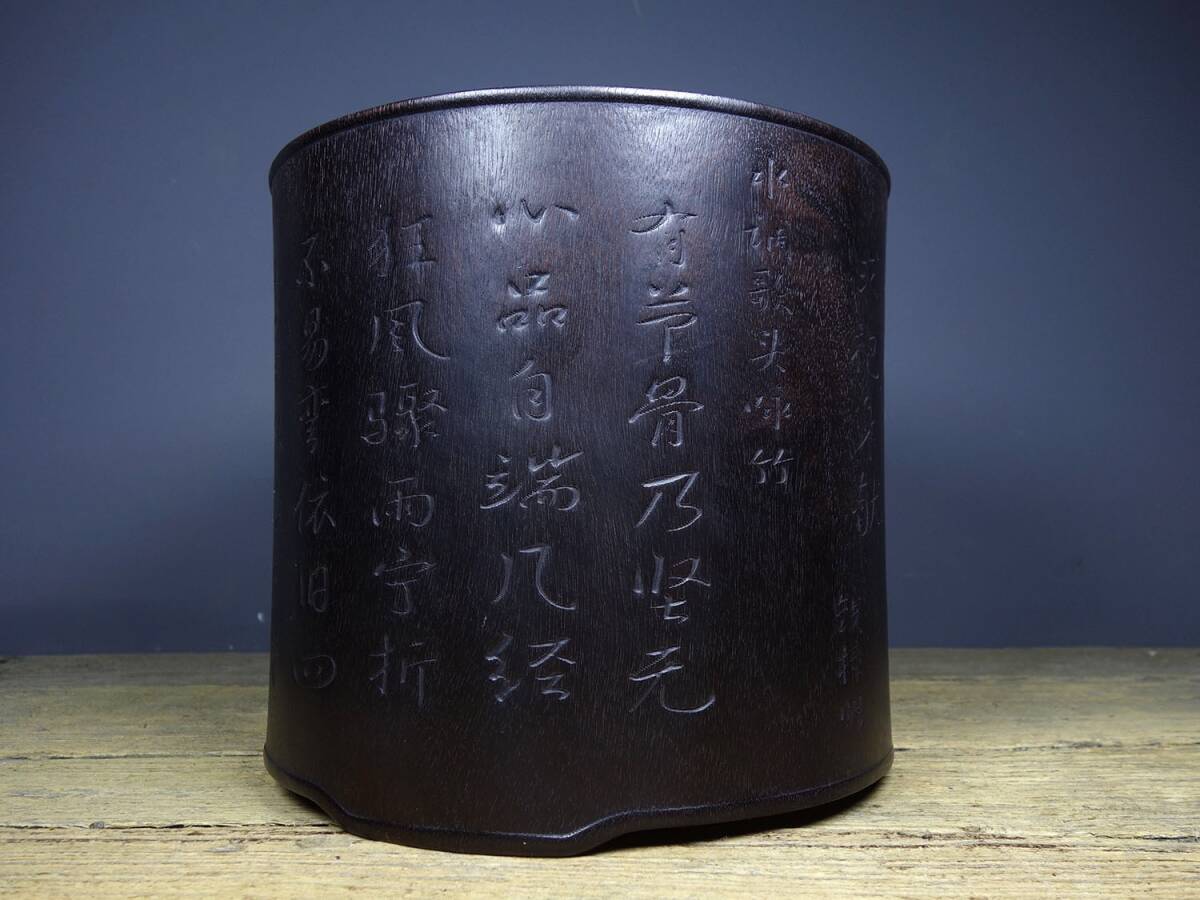 水调歌头咏竹
有节骨乃坚无
心品自端几经
狂风骤雨宁折
不易弯依旧四